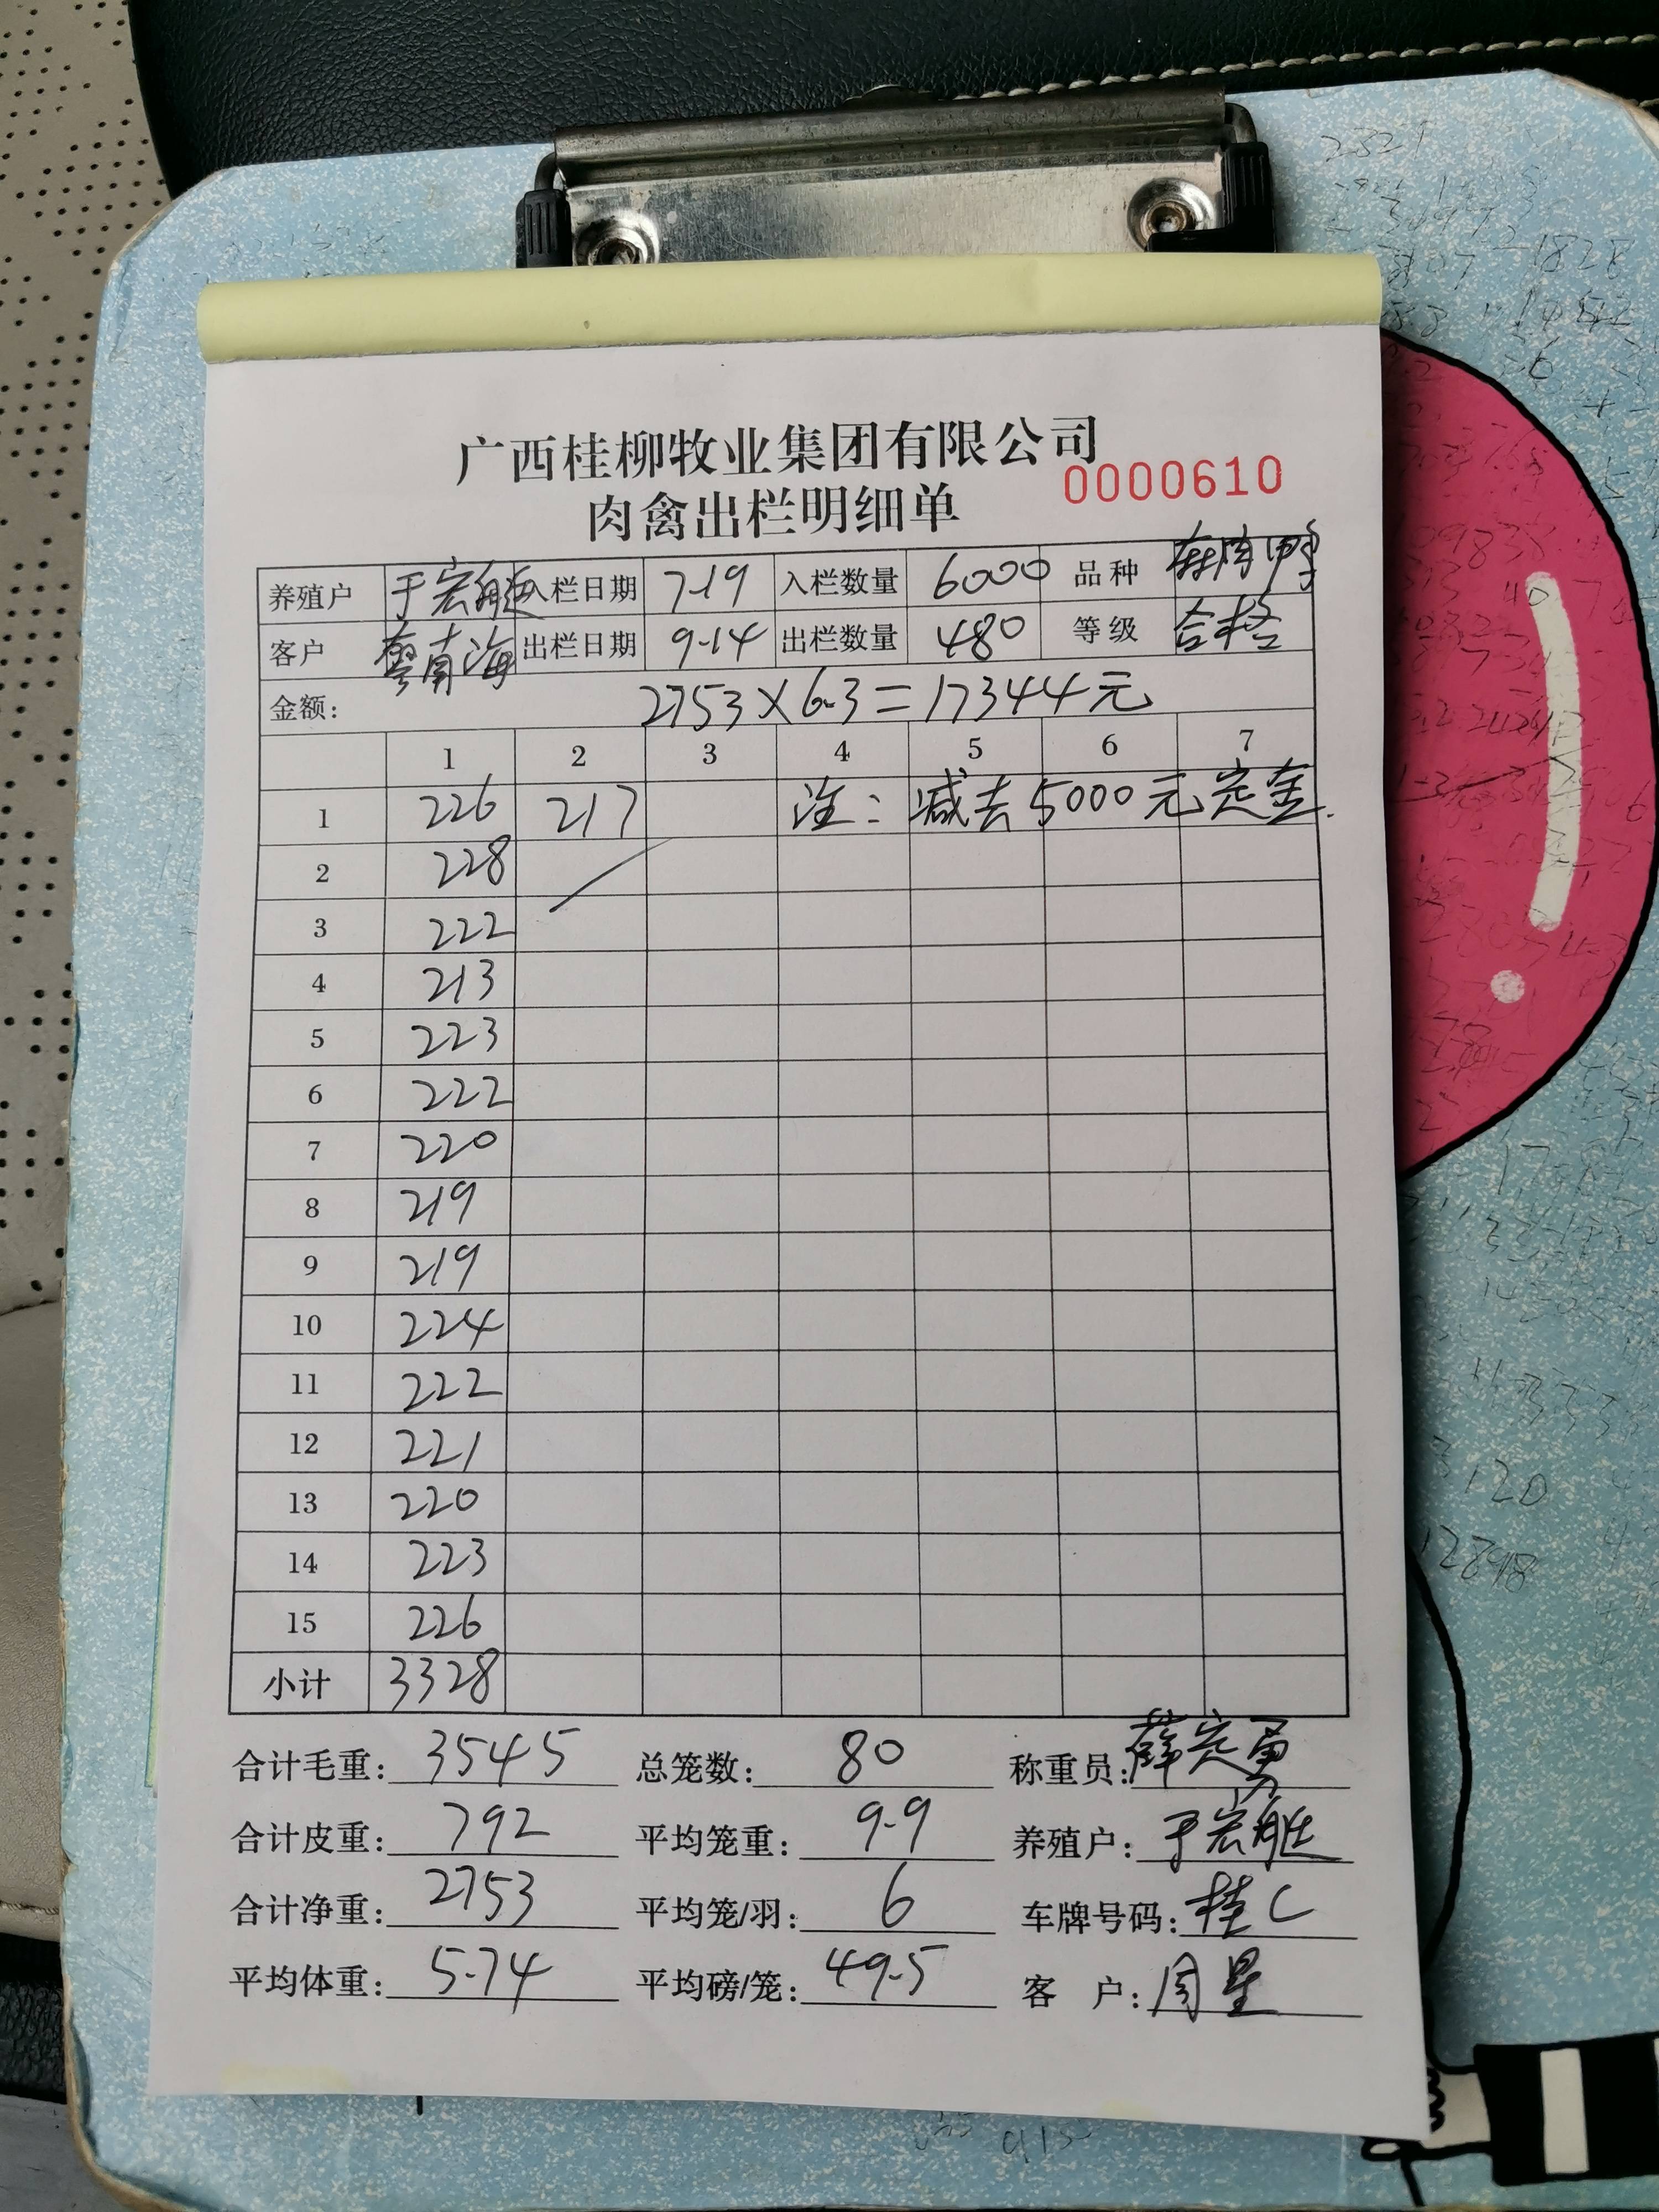 广西桂柳牧业集团有限公司
0000610
肉禽出栏明细单
养殖户 于宏 入栏日期 7-19 入栏数量 6000 品种 鸭
客户 粤南海 出栏日期 9-14 出栏数量 480 等级 合格
金额: 2753×6.3=17344元
1 2 3 4 5 6 7
1 226 217 注:减去5000元定金.
2 228
3 222
4 213
5 223
6 222
7 220
8 219
9 219
10 224
11 222
12 221
13 220
14 223
15 226
小计 3328
合计毛重: 3545 总笼数: 80 称重员: 薛定勇
合计皮重: 792 平均笼重: 9.9 养殖户: 于宏
合计净重: 2753 平均笼/羽: 6 车牌号码: 桂C
平均体重: 5.74 平均磅/笼: 49.5 客户: 周星